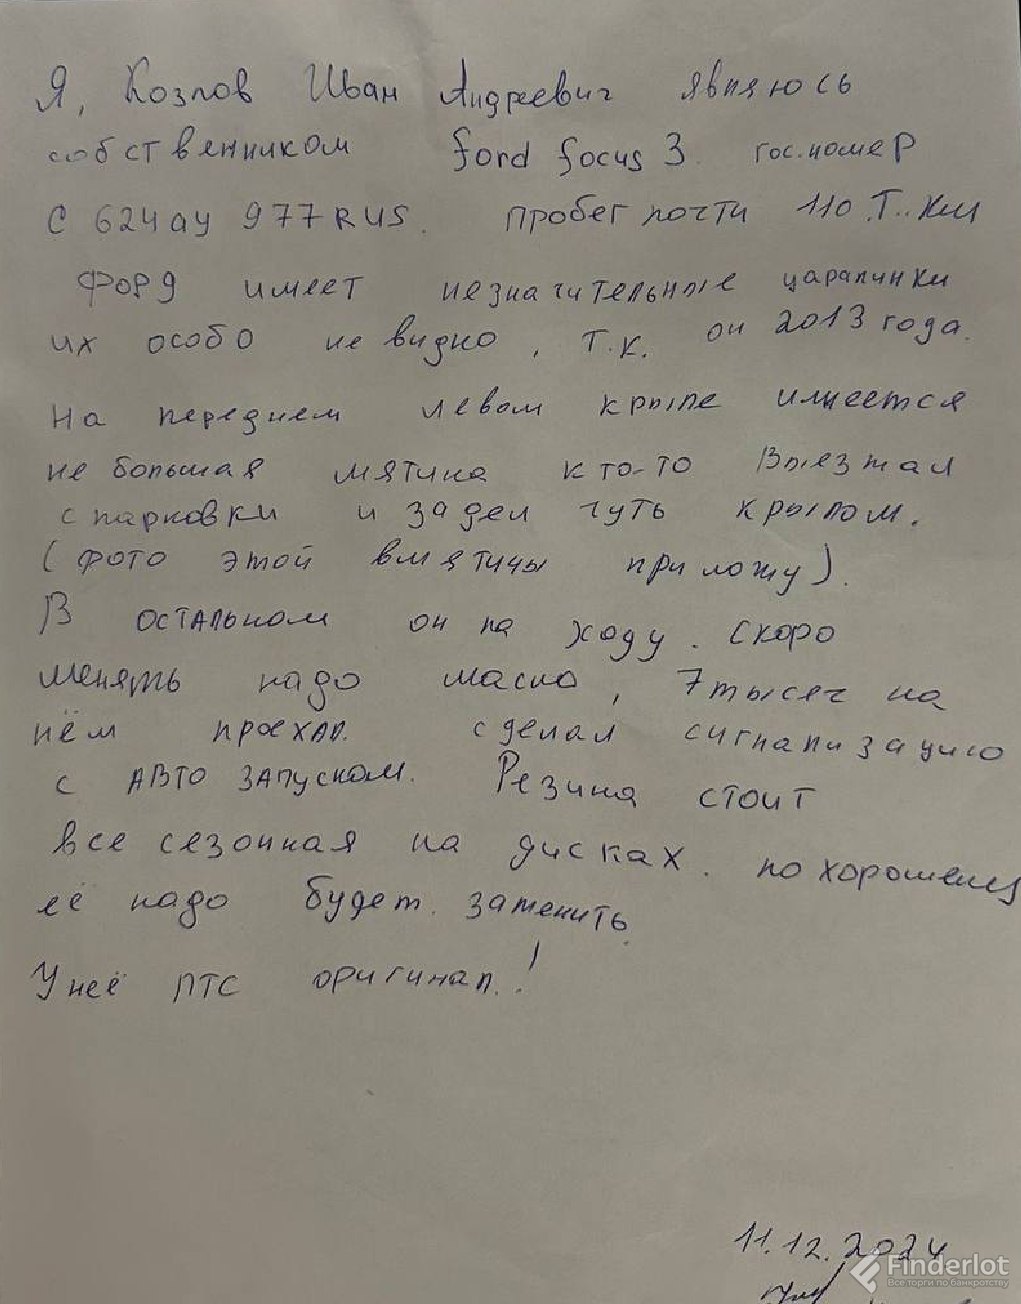 Я, Козлов Иван Андреевич являюсь
собственником ford focus 3. гос.номер
С 624ау 977RUS. пробег почти 110.Т..км
Форд имеет незначительные царапинки
их особо не видно, т.к. он 2013 года.
На переднем левом крыле имеется
не большая мятина кто-то выезжал
с парковки и задел чуть крылом.
(фото этой вмятины приложу).
В остальном он на ходу. скоро
менять надо масло, 7 тысяч на
нём проехал. сделал сигнализацию
с АВТО запуском. Резина стоит
все сезонная на дисках. по хорошему
её надо будет заменить.
У неё ПТС оригинал.!
11.12.2024
Finderlot
Все торги по банкротству